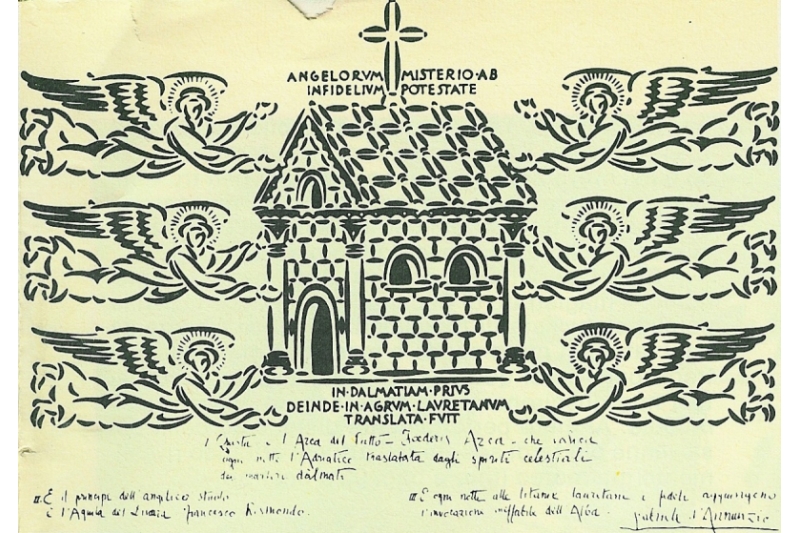 ANGELORVM MISTERIO·AB
INFIDELIVM POTESTATE
IN·DALMATIAM·PRIVS
DEINDE·IN·AGRVM·LAVRETANVM
TRANSLATA·FVIT
Questa è l'Arca del Patto - Foederis Arca - che
ogni notte l'Adriatico traslatata dagli spiriti celestiali
dei martiri dàlmati
II. È il principe dell'angelico stuolo
è l'Aquila del Francesco Rismondo.
III E ogni notte alle litanie lauretane i fedeli aggiungono
l'invocazione ineffabile dell'
Gabriele d'Annunzio